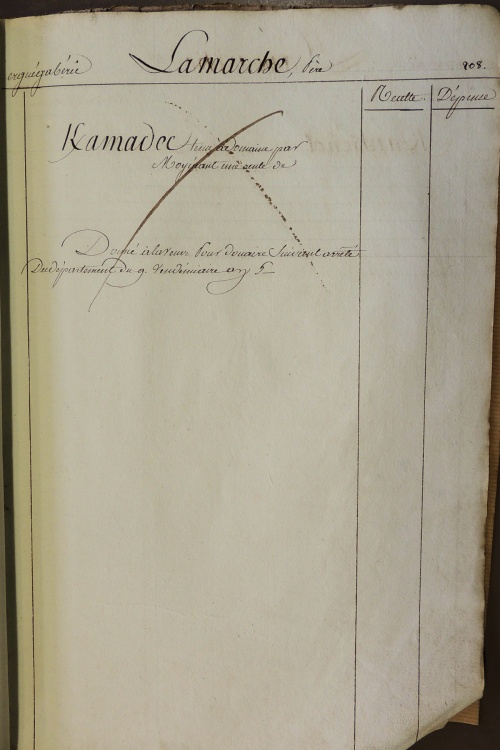 erguégabéric Lamarche, père 208.
Recette Dépense
Kamadec tenu à domaine par
Moyénant une rente de
Donné à la veuve pour douaire suivant arrêté
Du département du 9. Vendémiaire an 5